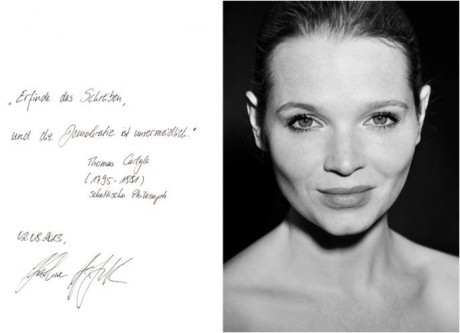 „Erfinde das Schreiben,
und die Demokratie ist unvermeidlich."
Thomas Carlyle
(1795-1881)
schottischer Philosoph
02.05.2013,